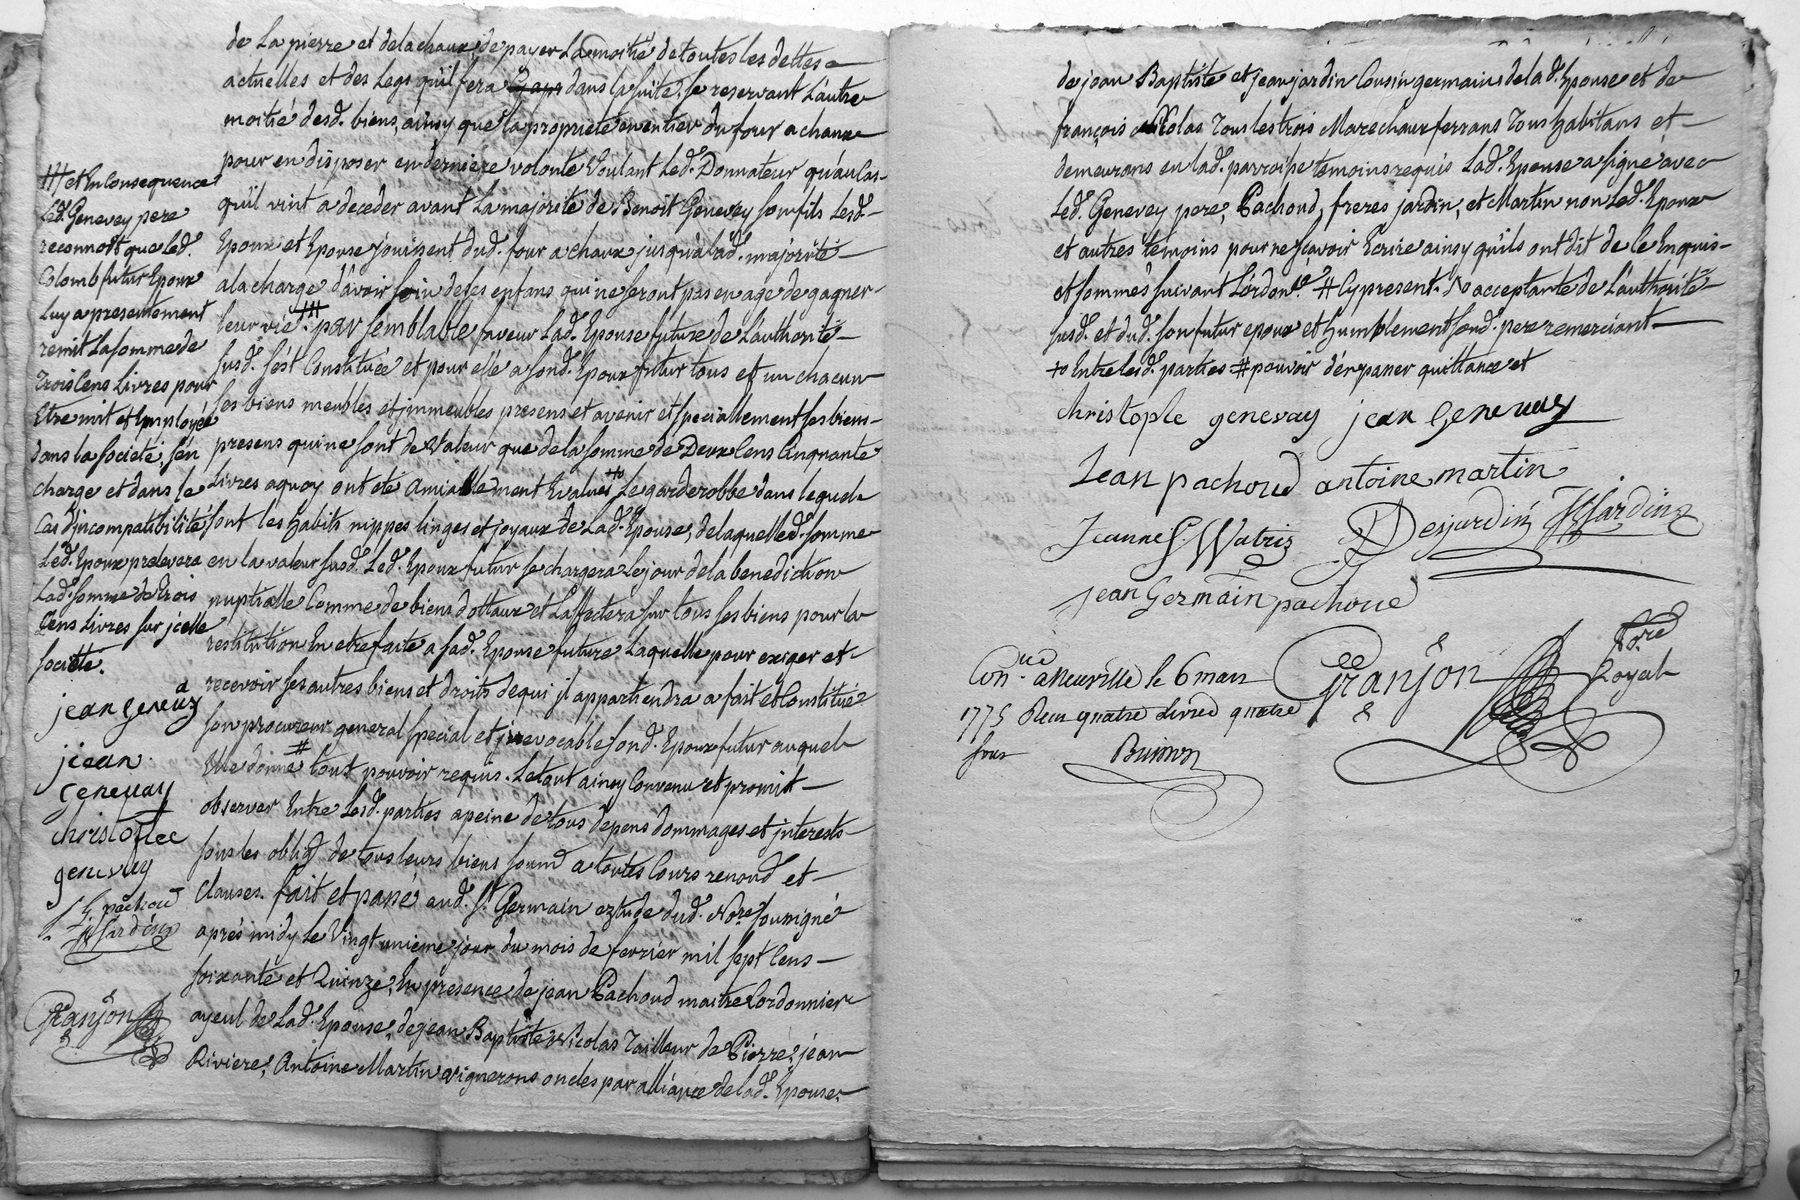 de La pierre et dela chaux, de payer La moitié de toutes les dettes
actuelles et des Legs qu'il fera dans la suite, se reservant L'autre
moitié desd. biens, ainsy que la proprieté en entier du four a chaux
pour en disposer en derniere volonté Voulant Led. Donnateur qu'au cas
qu'il vint a deceder avant La majorité de Benoit Genevey son fils Lesd.
Epoux et Epouse jouissent dud. four a chaux jusqu'a lad. majorité
ala charge d'avoir soin de ses enfans qui ne seront pas en age de gagner
leur vie. ## par semblable faveur Lad. Epouse future de L'authorité
susd. s'est Constituée et pour elle a sond. Epoux futur tous et un chacun
ses biens meubles et immeubles presens et avenir et speciallement ses biens
presens qui ne sont de Valeur que de la somme de Deux Cens Cinquante
Livres a quoy ont été amiablement Evalués Le garderobbe dans lequel
sont les habits nippes linges et joyaux de Lad. Epouse, de laquelle d. somme
en la valeur susd. Led. Epoux futur se chargera Le jour de la benediction
nuptialle Comme de biens dottaux et L'affectera sur tous ses biens pour la
restitution En etre faite a sad. Epouse future Laquelle pour exiger et
recevoir ses autres biens et droits de qui il appartiendra a fait et Constitué
son procureur general special et irrevocable sond. Epoux futur auquel
Elle donne # tout pouvoir requis. Le tout ainsy Convenu et promit
observer Entre Lesd. parties a peine de tous depens dommages et interests
sous les obligõ de tous leurs biens soumõ a toutes Cours renonõ et
Clauses. fait et passé aud. St. Germain eztude dud. Nore soussigné
après midy Le Vingt unieme jour du mois de fevrier mil sept Cens
soixante et Quinze, En presence de jean Pachoud maitre Cordonnier
ayeul de Lad. Epouse, de jean Baptiste Nicolas Tailleur de Pierre, jean
Riviere, Antoine Martin vignerons oncles par alliance de lad. Epouse
## et En Consequence
Led. Genevey pere
reconnoit que led.
Colomb futur Epoux
Luy a presentement
remit La somme de
Trois Cens Livres pour
Etre mit et Employée
dans la societé, s'en
charge et dans le
Cas d'incompatibilité
Led. Epoux prelevera
Lad. somme de trois
Cens Livres sur icelle
societté.
jean genevay
jean
Genevay
christofle
genevay
J. G. pachoud
JB jardin
Granjon
de jean Baptiste et jean jardin Cousin germains de la d. Epouse et de
françois Nicolas Tous les trois Marechaux ferrans Tous habitans et
demeurans en lad. parroisse temoins requis Lad. Epouse a signé avec
Led. Genevey pere, Pachoud, freres jardin, et Martin non Led. Epoux
et autres temoins pour ne sçavoir Ecrire ainsy qu'ils ont dit de ce Enquis
et sommés suivant L'ordonce. # Cy present. acceptante de L'authorité
susd. et dud. son futur epoux et humblement sond. pere remerciant
Entre lesd. parties # pouvoir d'en passer quittance et
christople genevay jean Genevay
Jean pachoud antoine martin
Jeanne Watriz Desjardin JB Jardin
jean Germain pachoud
Conue. a Neuville le 6 mars Granjon Nore
1775 Recu quatre Livres quatre Royal
sous Buisson